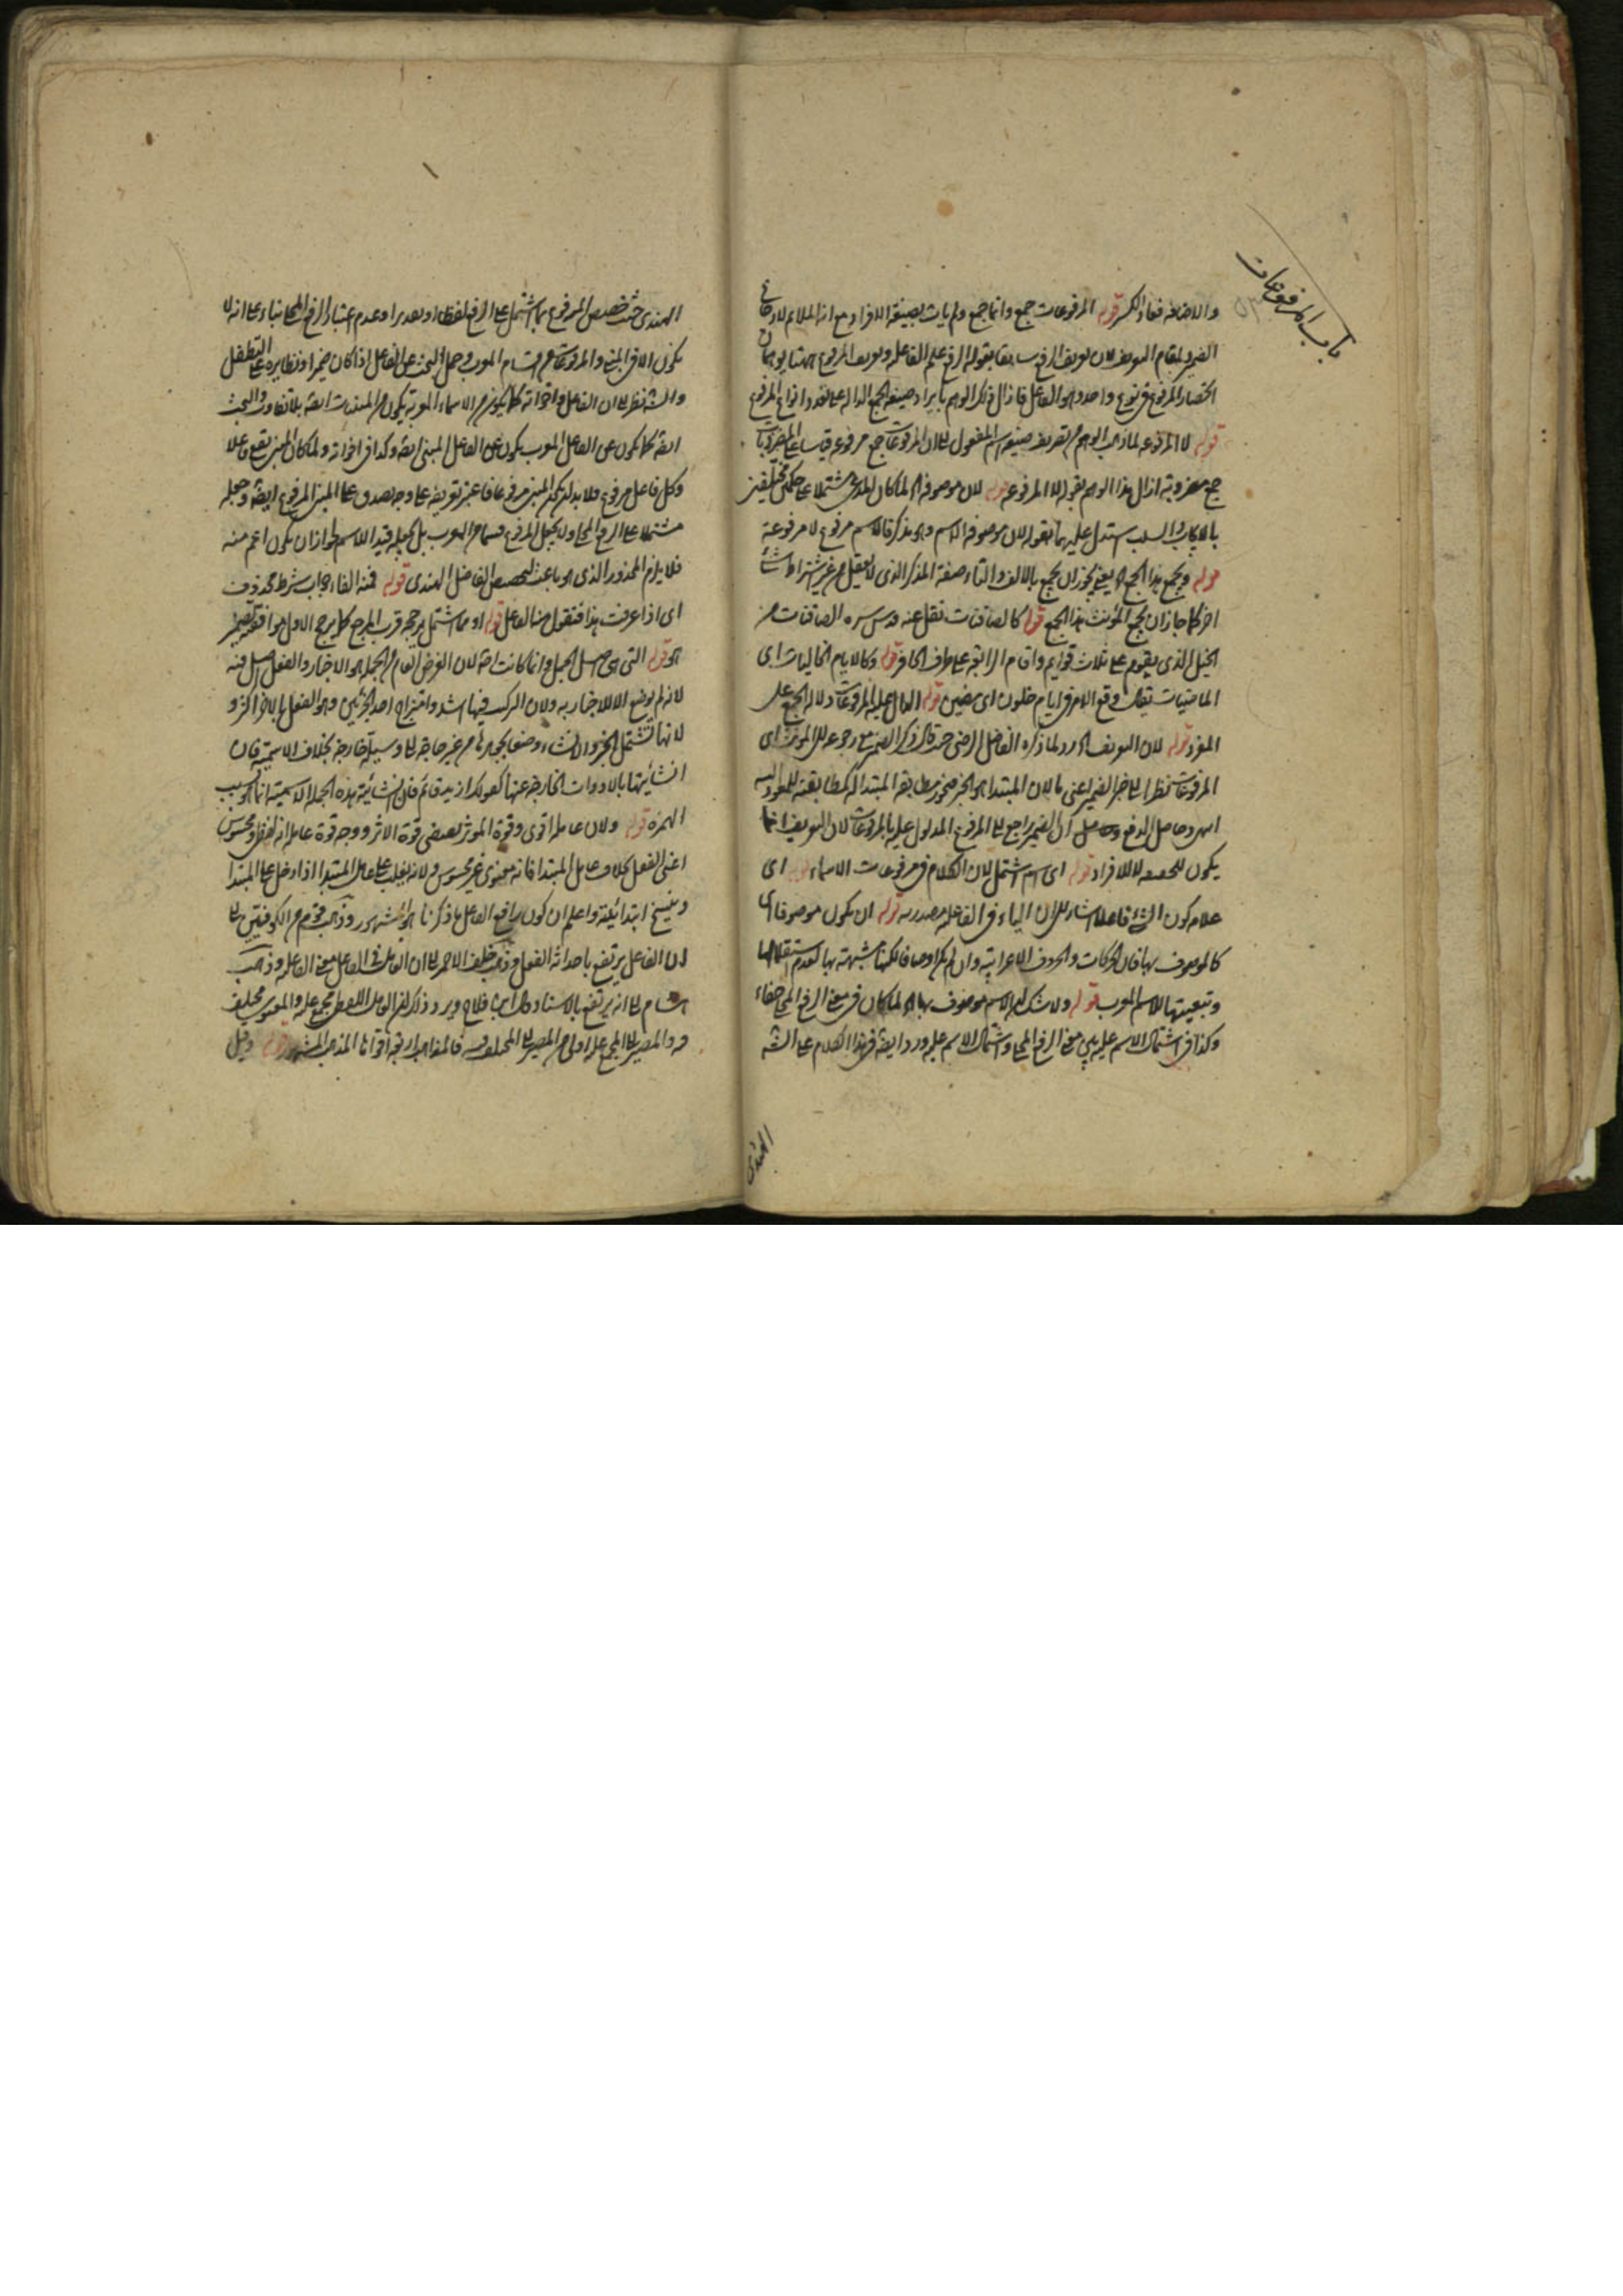 باب المرفوعات
والاضافه فعاد الكسر قوله المرفوعات جمع وانما جمع ولم يأت بصيغة الافراد مع انه الملائم لافراد
الضمير لمقام التعريف لان تعريف الرفع سابقا بقوله الرفع علم الفاعلية وتعريف المرفوع ههنا يوهمان
انحصار المرفوع في نوع واحد وهو الفاعل فازال ذلك الوهم بايراد صيغة الجمع الدالة على تعدد انواع المرفوع
قوله لا المرفوعة لما ذهب الوهم من تعريف صيغة اسم المفعول الى ان المرفوعات جمع مرفوعة قياسا على المضروبات
جمع مضروبة ازال هذا الوهم بقوله لا المرفوعة قوله لان موصوفه الخ لما كان المدعى مشتملا على حكمين مختلفين
بالايجاب والسلب استدل عليهما بقوله لان موصوفه الاسم وهو مذكر فالاسم مرفوع لا مرفوعة
قوله ويجمع هذا الجمع الخ يعني يجوز ان يجمع بالالف والتاء صفة المذكر الذي لا يعقل من غير اشتراط شئ
اخر كما جاز ان يجمع المؤنث هذا الجمع قوله كالصافنات نقل عنه قدس سره الصافنات من
الخيل الذي يقوم على ثلاث قوائم واقام الرابعة على طرف الحافر قوله وكالايام الخاليات اى
الماضيات يقال وقع الامر في ايام خلون اى مضين قوله الدال عليه المرفوعات دلالة الجمع على
المفرد قوله لان التعريف الخ رد لما ذكره الفاضل الرضى حيث قال ذكر الضمير مع رجوعه الى المؤنث اى
المرفوعات نظرا الى خبر الضمير اعنى ما لان المبتدا هو الخبر فيجوز مطابقة المبتدا له كمطابقته للمعود اليه
وحاصل الدفع ان الضمير راجع الى المرفوع المدلول عليه بالمرفوعات لان التعريف انما
يكون للحقيقة لا للافراد قوله اى اسم اشتمل لان الكلام في مرفوعات الاسماء قوله اى
علامة كون الشئ فاعلا اشارة الى ان الياء في الفاعلية مصدرية قوله ان يكون موصوفا بها
كالموصوف بها فان الحركات والحروف الاعرابية وان لم يكن اوصافا لكنها شبيهة بها لعدم استقلالها
وتبعيتها للاسم المعرب قوله ولا شك ان الاسم موصوف بها الخ لما كان في معنى الرفع المحلى خفاء
وكذا في اشتمال الاسم عليه بين معنى الرفع المحلى واشتمال الاسم عليه ورد ايضا فى هذا الكلام على الش
الهندى
الهندى حيث خصص المرفوع بما اشتمل على الرفع لفظا او تقديرا وعدم اعتبار الرفع المحلى بناء على انه لا
يكون الا فى المبنى والمرفوعات من اقسام المعرب وجعل البحث عن الفاعل اذا كان ضميرا ونظايره على التطفل
والش نظر الى ان الفاعل واخواته كما يكون من الاسماء المعربة يكون من المبنيات ايضا بلا تفاوت والبحث
ايضا كما يكون عن الفاعل المعرب يكون عن الفاعل المبنى ايضا وكذا فى اخواته ولما كان المبنى يقع فاعلا
وكل فاعل مرفوع فلا بد ان يكون المبنى مرفوعا فاعتبر تعريفه على وجه يصدق على المبنى المرفوع ايضا وجعله
مشتملا على الرفع المحلى ولا يجعل المرفوع قسما من المعرب بل يجعله قيد الاسم لجواز ان يكون اعم منه
فلا يلزم المحذور الذى هو باعث لتخصيص الفاضل الهندى قوله فمنه الفاء جواب شرط محذوف
اى اذا عرفت هذا فنقول منه الفاعل قوله او مما اشتمل يرجحه قرب المرجع كما يرجح الاول موافقته لضمير
هو قوله التى هى اصل الجمل وانما كانت اصلا لان الغرض العام من الجملة هو الاخبار والفعل اصل فيه
لانه لم يوضع الا للاخبار به ولان التركيب فيها اشد وامتزاج احد الجزئين وهو الفعل بالاخر اكثر و
لانها تشتمل الخبر والانشاء وضعا بجوهرها من غير حاجة الى وسيلة خارجة بخلاف الاسمية فان
انشائيتها بالادوات الخارجة عنها كقولك ازيد قائم فان انشائية هذه الجملة الاسمية انما هو بسبب
الهمزة قوله ولان عامله اقوى وقوة المؤثر يقتضى قوة الاثر ووجه قوة عامله انه لفظى ومحسوس
اعنى الفعل بخلاف عامل المبتدا فانه معنوى غير محسوس ولانه يغلب على عامل المبتدا اذا دخل على المبتدا
وينسخ ابتدائيته واعلم ان كون رافع الفاعل ما ذكرنا هو المشهور وذهب قوم من الكوفيين الى
ان الفاعل يرتفع باحداثه الفعل وذهب خلف الاحمر الى ان العامل فى الفاعل معنى الفاعلية وذهب
هشام الى انه يرتفع بالاسناد ويرد ذلك ان العامل اللفظى مجمع عليه والمعنوى مختلف
فيه والمصير الى المجمع عليه اولى من المصير الى المختلف فيه فالمذاهب اربعة اقواها المذهب المشهور قوله وقيل